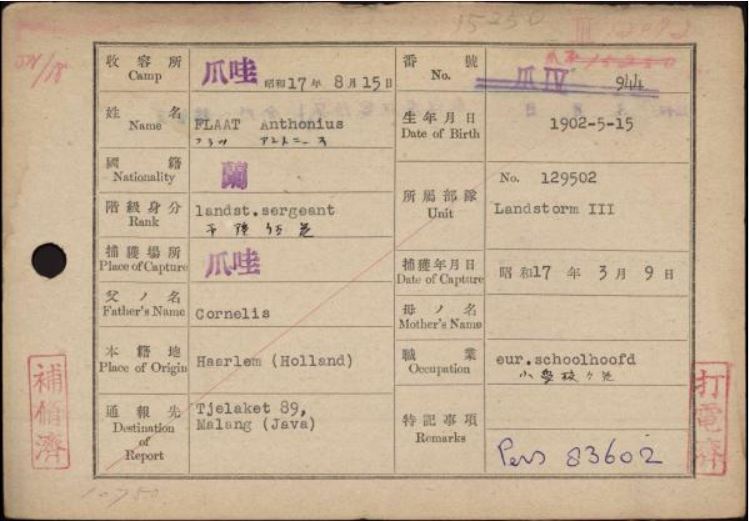 15250
収容所
Camp
爪哇 昭和17年 8月15日
番號
No.
爪 IV 944
姓名
Name
FLAAT Anthonius
フラツ アントニース
生年月日
Date of Birth
1902-5-15
國籍
Nationality
蘭
階級身分
Rank
landst.sergeant
所屬部隊
Unit
No. 129502
Landstorm III
捕獲場所
Place of Capture
爪哇
捕獲年月日
Date of Capture
昭和17年 3月 9日
父ノ名
Father's Name
Cornelis
母ノ名
Mother's Name
本籍地
Place of Origin
Haarlem (Holland)
職業
Occupation
eur.schoolhoofd
小學校
通報先
Destination
of
Report
Tjelaket 89,
Malang (Java)
特記事項
Remarks
Pers 83602
打電済
10750